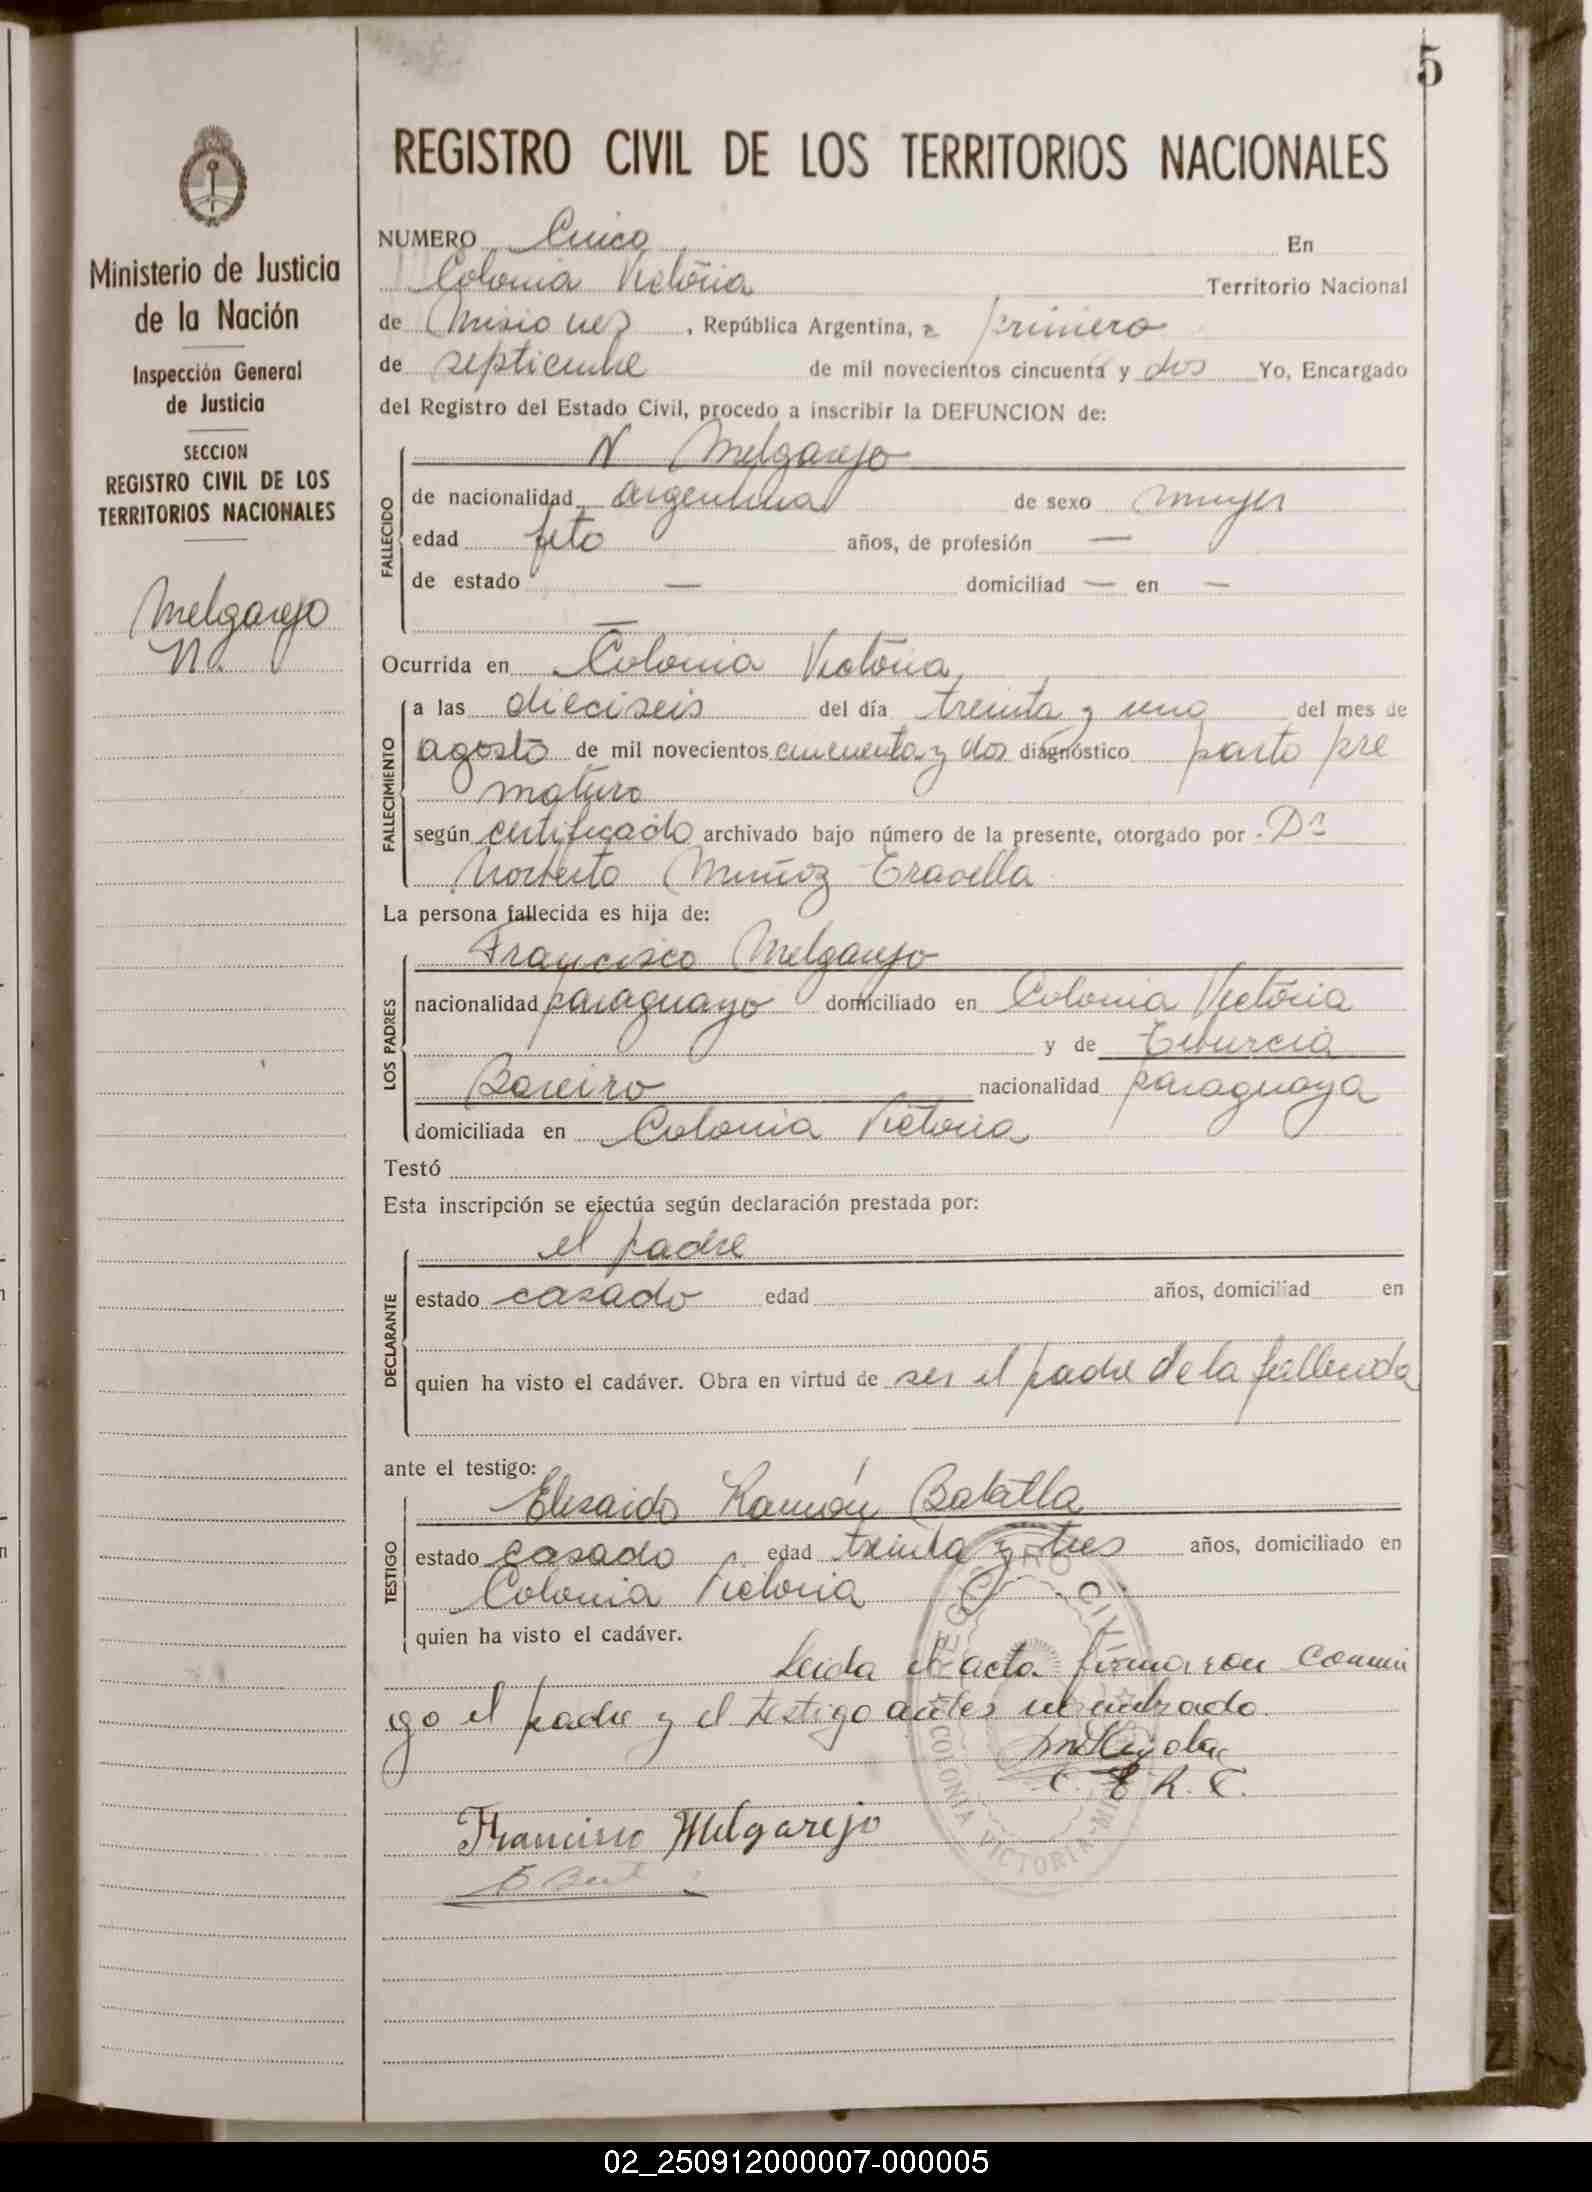 5
REGISTRO CIVIL DE LOS TERRITORIOS NACIONALES
Ministerio de Justicia
de la Nación
Inspección General
de Justicia
SECCION
REGISTRO CIVIL DE LOS
TERRITORIOS NACIONALES
Melgarejo
N.
NUMERO Cinco En
Colonia Victoria Territorio Nacional
de Misiones, República Argentina, a primero
de septiembre de mil novecientos cincuenta y dos Yo, Encargado
del Registro del Estado Civil, procedo a inscribir la DEFUNCION de:
FALLECIDO
N Melgarejo
de nacionalidad argentina de sexo mujer
edad feto años, de profesión —
de estado — domiciliad — en —
—
Ocurrida en Colonia Victoria
FALLECIMIENTO
a las dieciseis del día treinta y uno del mes de
agosto de mil novecientos cincuenta y dos diagnóstico parto pre
maturo
según certificado archivado bajo número de la presente, otorgado por Dr
Norberto Muñoz Travella
La persona fallecida es hija de:
LOS PADRES
Francisco Melgarejo
nacionalidad paraguayo domiciliado en Colonia Victoria
y de Tiburcia
Bareiro nacionalidad paraguaya
domiciliada en Colonia Victoria
Testó
Esta inscripción se efectúa según declaración prestada por:
DECLARANTE
el padre
estado casado edad años, domiciliad en
quien ha visto el cadáver. Obra en virtud de ser el padre de la fallecida
ante el testigo:
TESTIGO
Elisaido Ramón Batalla
estado casado edad treinta y tres años, domiciliado en
Colonia Victoria
quien ha visto el cadáver.
Leida el acta firmaron conmi
go el padre y el testigo antes nombrado.
E. R. C.
REGISTRO CIVIL
COLONIA VICTORIA-MI
Francisco Melgarejo
02_250912000007-000005